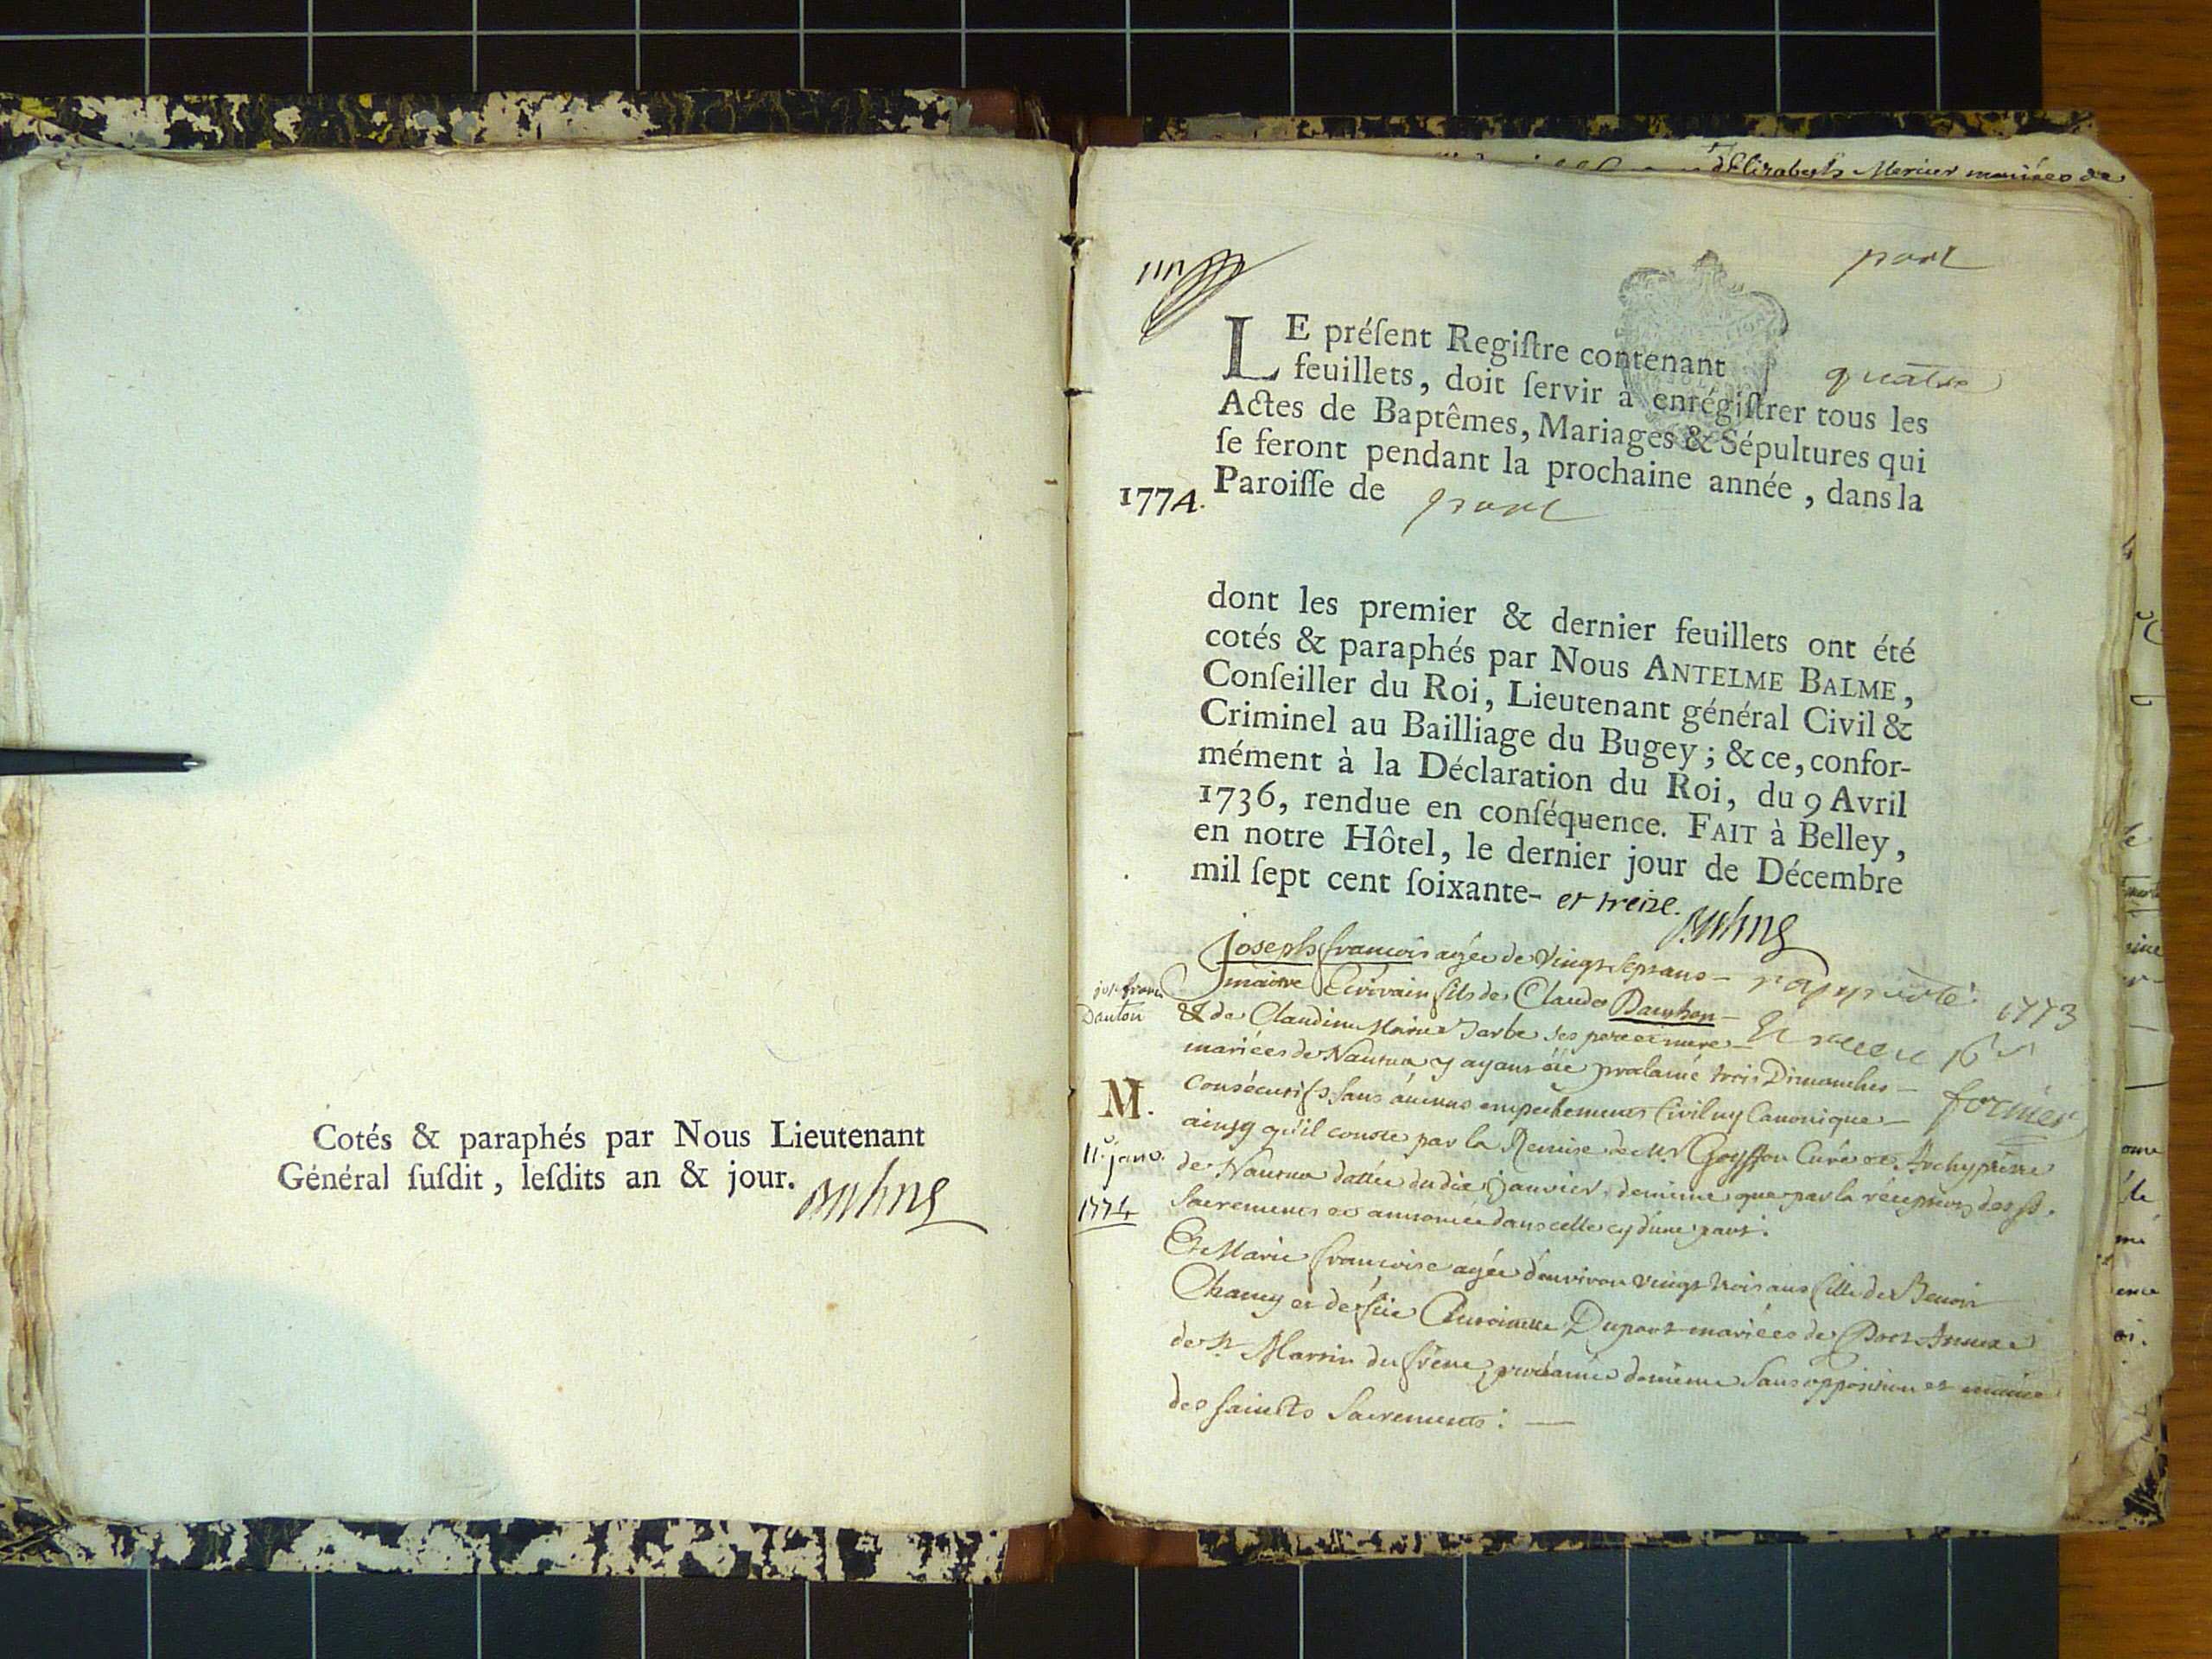 Cotés & paraphés par Nous Lieutenant
Général ſuſdit, leſdits an & jour.
d'Elizabeth Mercier mariées de
port
LE préſent Regiſtre contenant quatre
feuillets, doit ſervir à enrégiſtrer tous les
Actes de Baptêmes, Mariages & Sépultures qui
ſe feront pendant la prochaine année, dans la
1774. Paroiſſe de port
dont les premier & dernier feuillets ont été
cotés & paraphés par Nous ANTELME BALME,
Conſeiller du Roi, Lieutenant général Civil &
Criminel au Bailliage du Bugey; & ce, confor-
mément à la Déclaration du Roi, du 9 Avril
1736, rendue en conſéquence. FAIT à Belley,
en notre Hôtel, le dernier jour de Décembre
mil ſept cent ſoixante- et treize.
Joseph francois agée de vingt sept ans
maitre Ecrivain fils de Claude Dauthon
& de Claudine Marie Jarbe ses pere et mere
mariées de Nantua y ayant été proclamé trois Dimanches
consécutifs sans aucuns empechements Civil ny Canonique
ainsy qu'il conste par la Remise de Mr Goyffon Curé et Archyprêtre
de Nantua dattée du dix janvier, de même que par la réception des St.
Sacrements et annoncée dans celle cy d'une part.
Et Marie francoise agée d'environ vingt trois ans fille de Benoit
Chamy et de Antoinette Dupont mariées de Port Annexe
de St Martin du frêne, proclamée de même sans opposition et munie
des saincts Sacrements: —
jos francois
Dauton
M.
11e janv.
1774
rapporté 1773
fornier